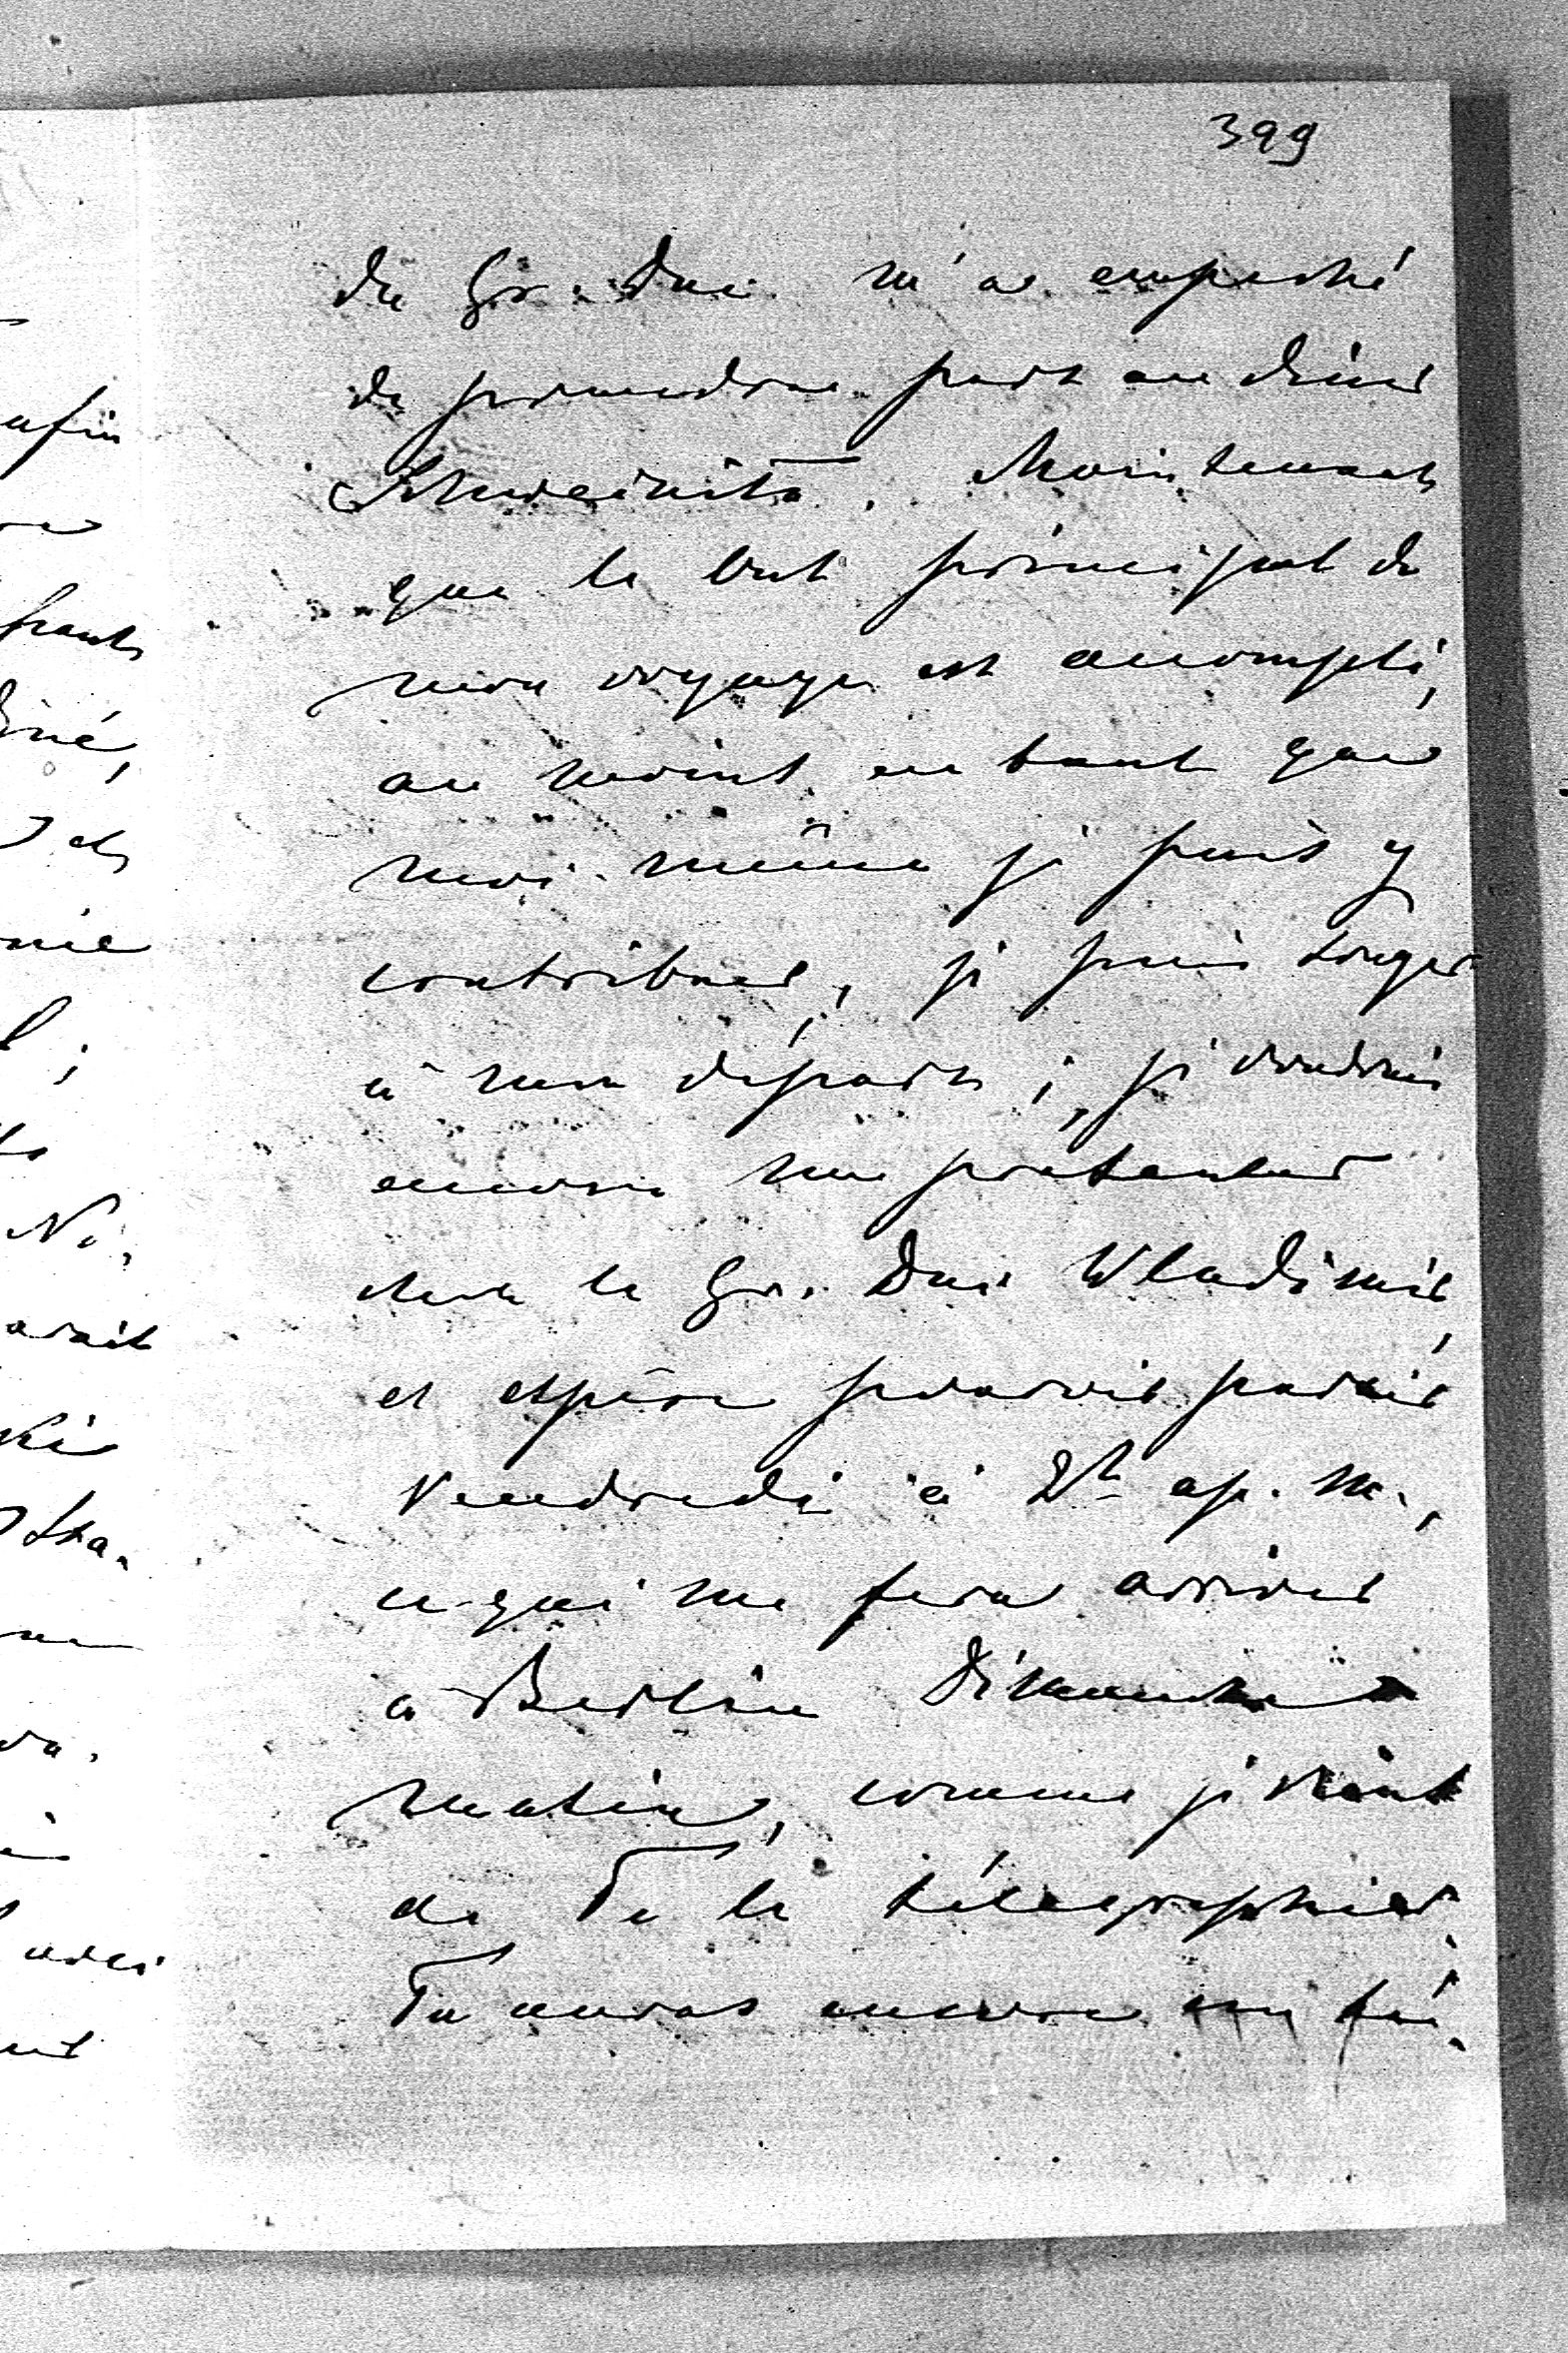 399
du Gr. Duc m'a empêché
de prendre part au dîner
Schweinitz. Maintenant
que le but principal de
mon voyage est accompli,
au moins en tant que
moi-même je puis y
contribuer, je puis songer
à mon départ; je voudrais
encore me présenter
chez le Gr. Duc Wladimir,
et espère pouvoir partir
Vendredi à 2h ap. m.,
ce qui me fera arriver
à Berlin Dimanche
matin, comme je viens
de Te le télégraphier.
Tu auras encore
afin
diné,
Ni,
avait